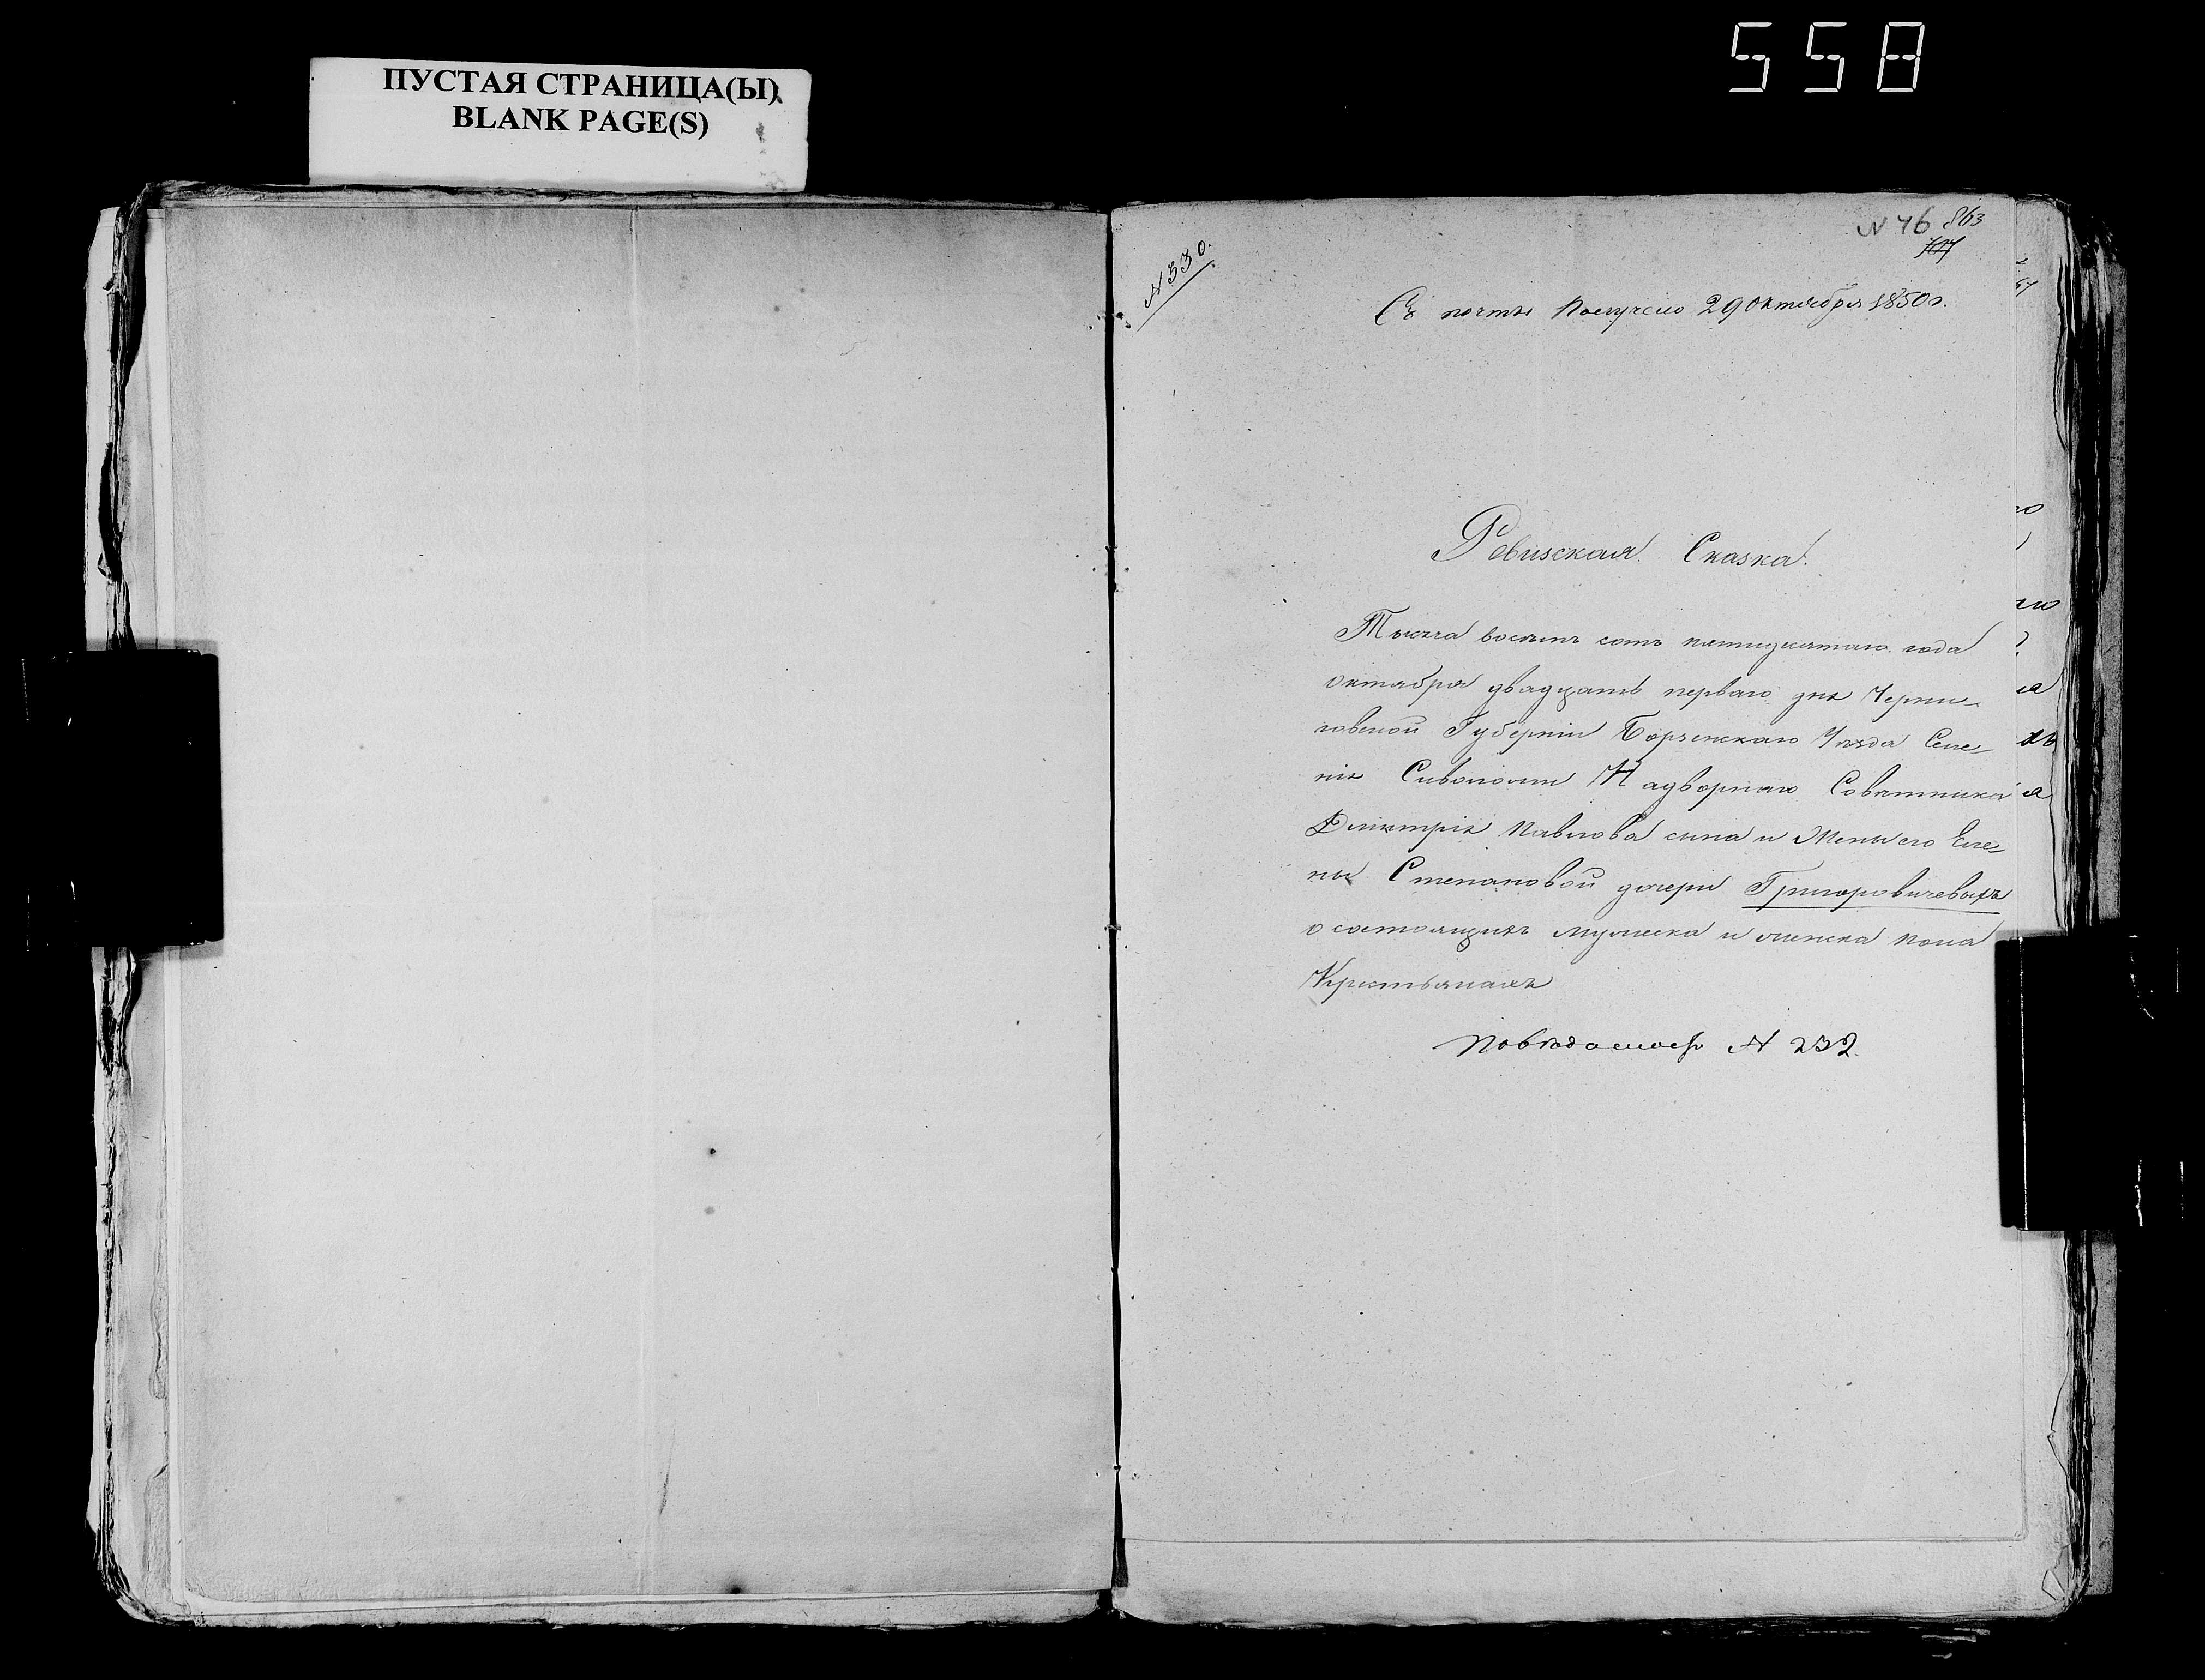 558
ПУСТАЯ СТРАНИЦА(Ы)
BLANK PAGE(S)
N 46 863
707
N 330.
Съ почты Получено 29 октября 1850 г.
Ревизская Сказка.
Тысяча восемь сотъ пятидесятаго года
октября двадцать перваго дня Черни-
говской Губерніи Борзенскаго Уѣзда Селе-
нія Сиволожи Надворнаго Совѣтника
Дмитрія Павлова сына и Жены его Еле-
ны Степановой дочери Григоровичевыхъ
о состоящихъ мужеска и женска пола
Крестьянахъ
По вѣдомости N 232.